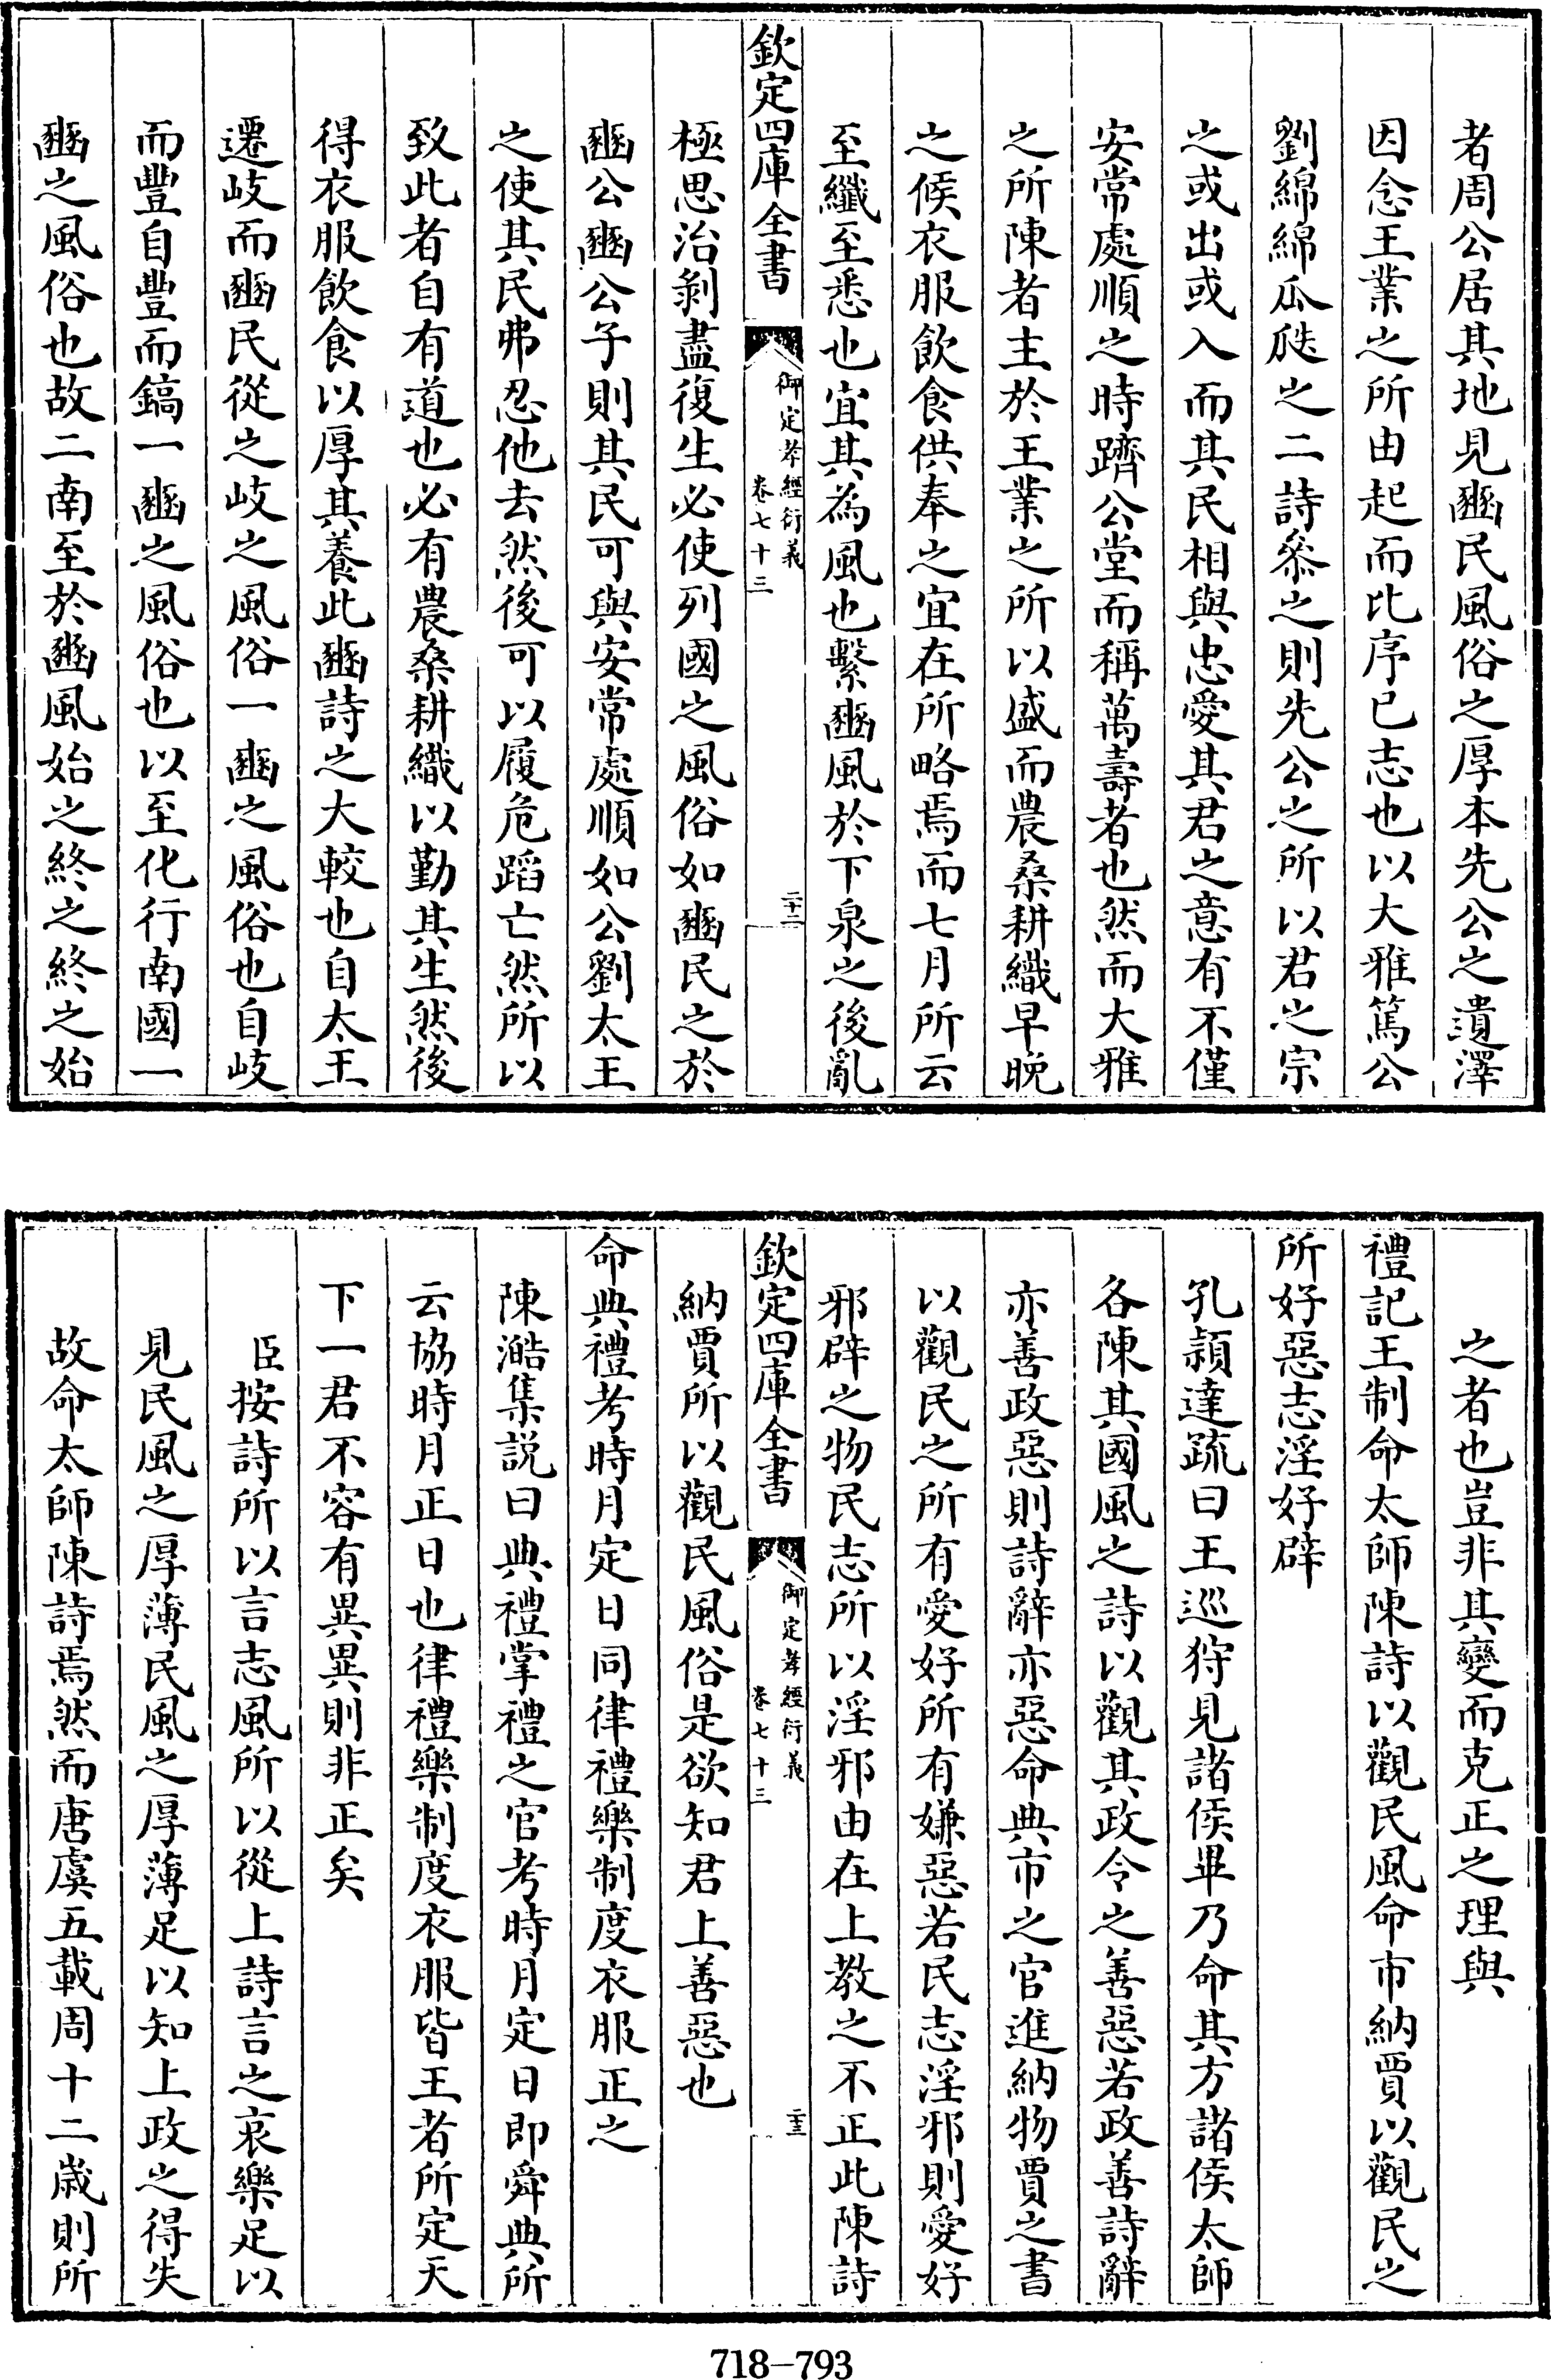 者周公居其地見豳民風俗之厚本先公之遺澤
因念王業之所由起而比序已志也以大雅篤公
劉綿綿瓜瓞之二詩叅之則先公之所以君之宗
之或出或入而其民相與忠愛其君之意有不僅
安常處順之時躋公堂而稱萬壽者也然而大雅
之所陳者主於王業之所以盛而農桑耕織早晚
之候衣服飲食供奉之宜在所略焉而七月所云
至纖至悉也宜其為風也繫豳風於下泉之後亂
欽定四庫全書
御定孝經衍義
卷七十三
二十二
極思治剝盡復生必使列國之風俗如豳民之於
豳公豳公子則其民可與安常處順如公劉太王
之使其民弗忍他去然後可以履危蹈亡然所以
致此者自有道也必有農桑耕織以勤其生然後
得衣服飲食以厚其養此豳詩之大較也自太王
遷岐而豳民從之岐之風俗一豳之風俗也自岐
而豐自豐而鎬一豳之風俗也以至化行南國一
豳之風俗也故二南至於豳風始之終之終之始
之者也豈非其變而克正之理與
禮記王制命太師陳詩以觀民風命市納賈以觀民之
所好惡志淫好辟
孔穎達疏曰王巡狩見諸侯畢乃命其方諸侯太師
各陳其國風之詩以觀其政令之善惡若政善詩辭
亦善政惡則詩辭亦惡命典市之官進納物賈之書
以觀民之所有愛好所有嫌惡若民志淫邪則愛好
邪辟之物民志所以淫邪由在上教之不正此陳詩
欽定四庫全書
御定孝經衍義
卷七十三
二十三
納賈所以觀民風俗是欲知君上善惡也
命典禮考時月定日同律禮樂制度衣服正之
陳澔集說曰典禮掌禮之官考時月定日即舜典所
云協時月正日也律禮樂制度衣服皆王者所定天
下一君不容有異異則非正矣
臣按詩所以言志風所以從上詩言之哀樂足以
見民風之厚薄民風之厚薄足以知上政之得失
故命太師陳詩焉然而唐虞五載周十二歲則所
718-793